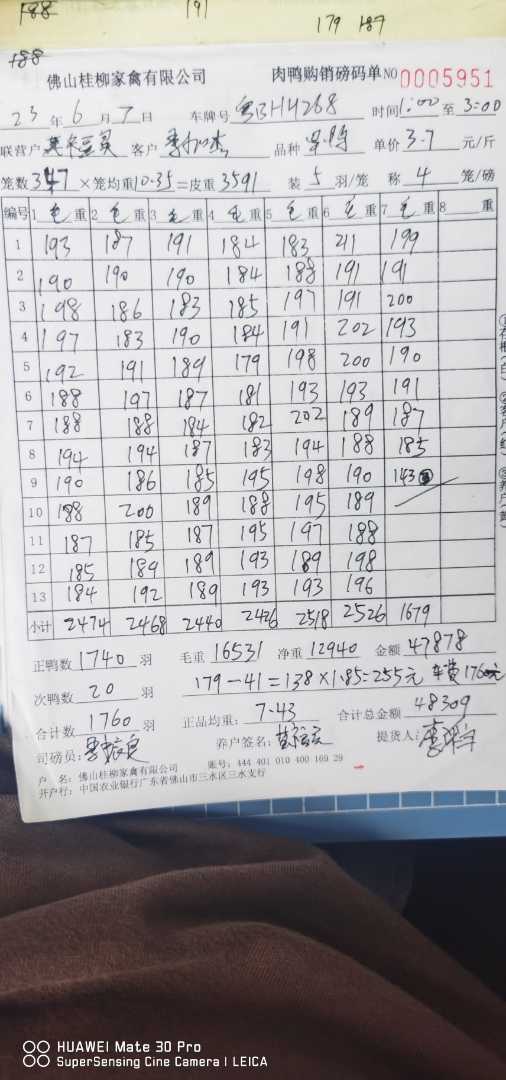 188 191 179 187
188
佛山桂柳家禽有限公司 肉鸭购销磅码单 NO 0005951
23 年 6 月 7 日 车牌号 粤BHH268 时间 1:00 至 3:00
联营户 客户 品种 单价 3.7 元/斤
笼数 347 ×笼均重 10.35 =皮重 3591 装 5 羽/笼 称 4 笼/磅
编号 1 毛重 2 毛重 3 毛重 4 毛重 5 毛重 6 毛重 7 毛重 8 重
1 193 187 191 184 183 211 199
2 190 190 190 184 188 191 191
3 198 186 183 185 197 191 200
4 197 183 190 184 191 202 193
5 192 191 189 179 198 200 190
6 188 197 187 181 193 193 191
7 188 188 184 182 202 189 187
8 194 194 187 183 194 188 185
9 190 186 185 195 198 190 143
10 188 200 189 188 195 189
11 187 185 187 195 197 188
12 185 189 189 193 189 198
13 184 192 189 193 193 196
小计 2474 2468 2440 2426 2518 2526 1679
正鸭数 1740 羽 毛重 16531 净重 12940 金额 47878
次鸭数 20 羽 179-41=138×1.85=255元 车费1760元
合计数 1760 羽 正品均重: 7.43 合计总金额 48309
司磅员: 养户签名: 提货人:
户 名: 佛山桂柳家禽有限公司 账号: 444 401 010 400 169 29
开户行: 中国农业银行广东省佛山市三水区三水支行
HUAWEI Mate 30 Pro
SuperSensing Cine Camera | LEICA